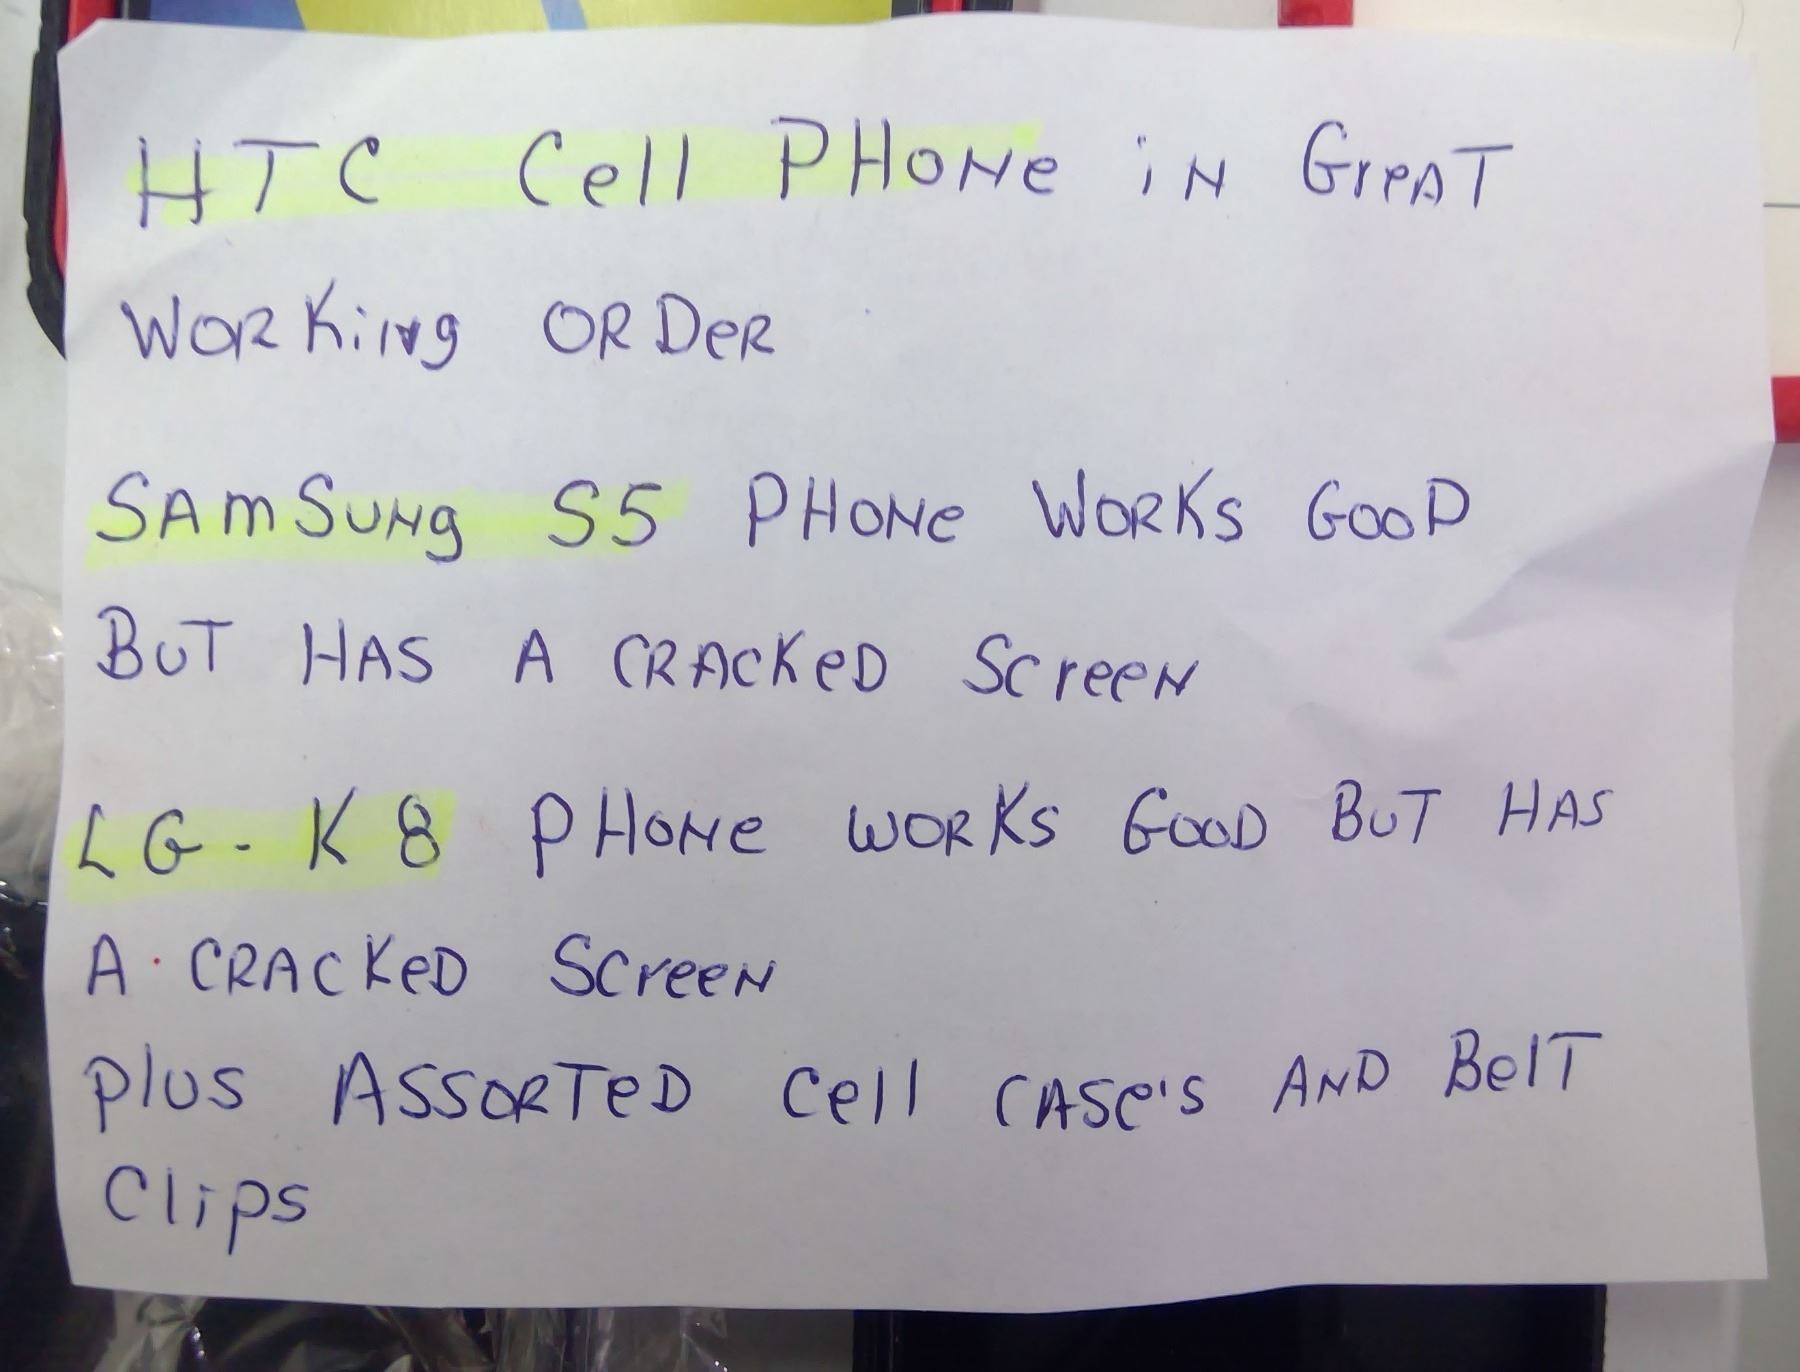 HTC Cell PHONe iN GreAT
WORKiNg ORDeR
SAmSuNg S5 PHONe WORKS GOOD
BuT HAS A CRACKeD SCreeN
LG-K8 PHONe WORKS GOOD BuT HAS
A CRACKeD SCreeN
Plus ASSORTeD Cell CASe's AND BelT
Clips